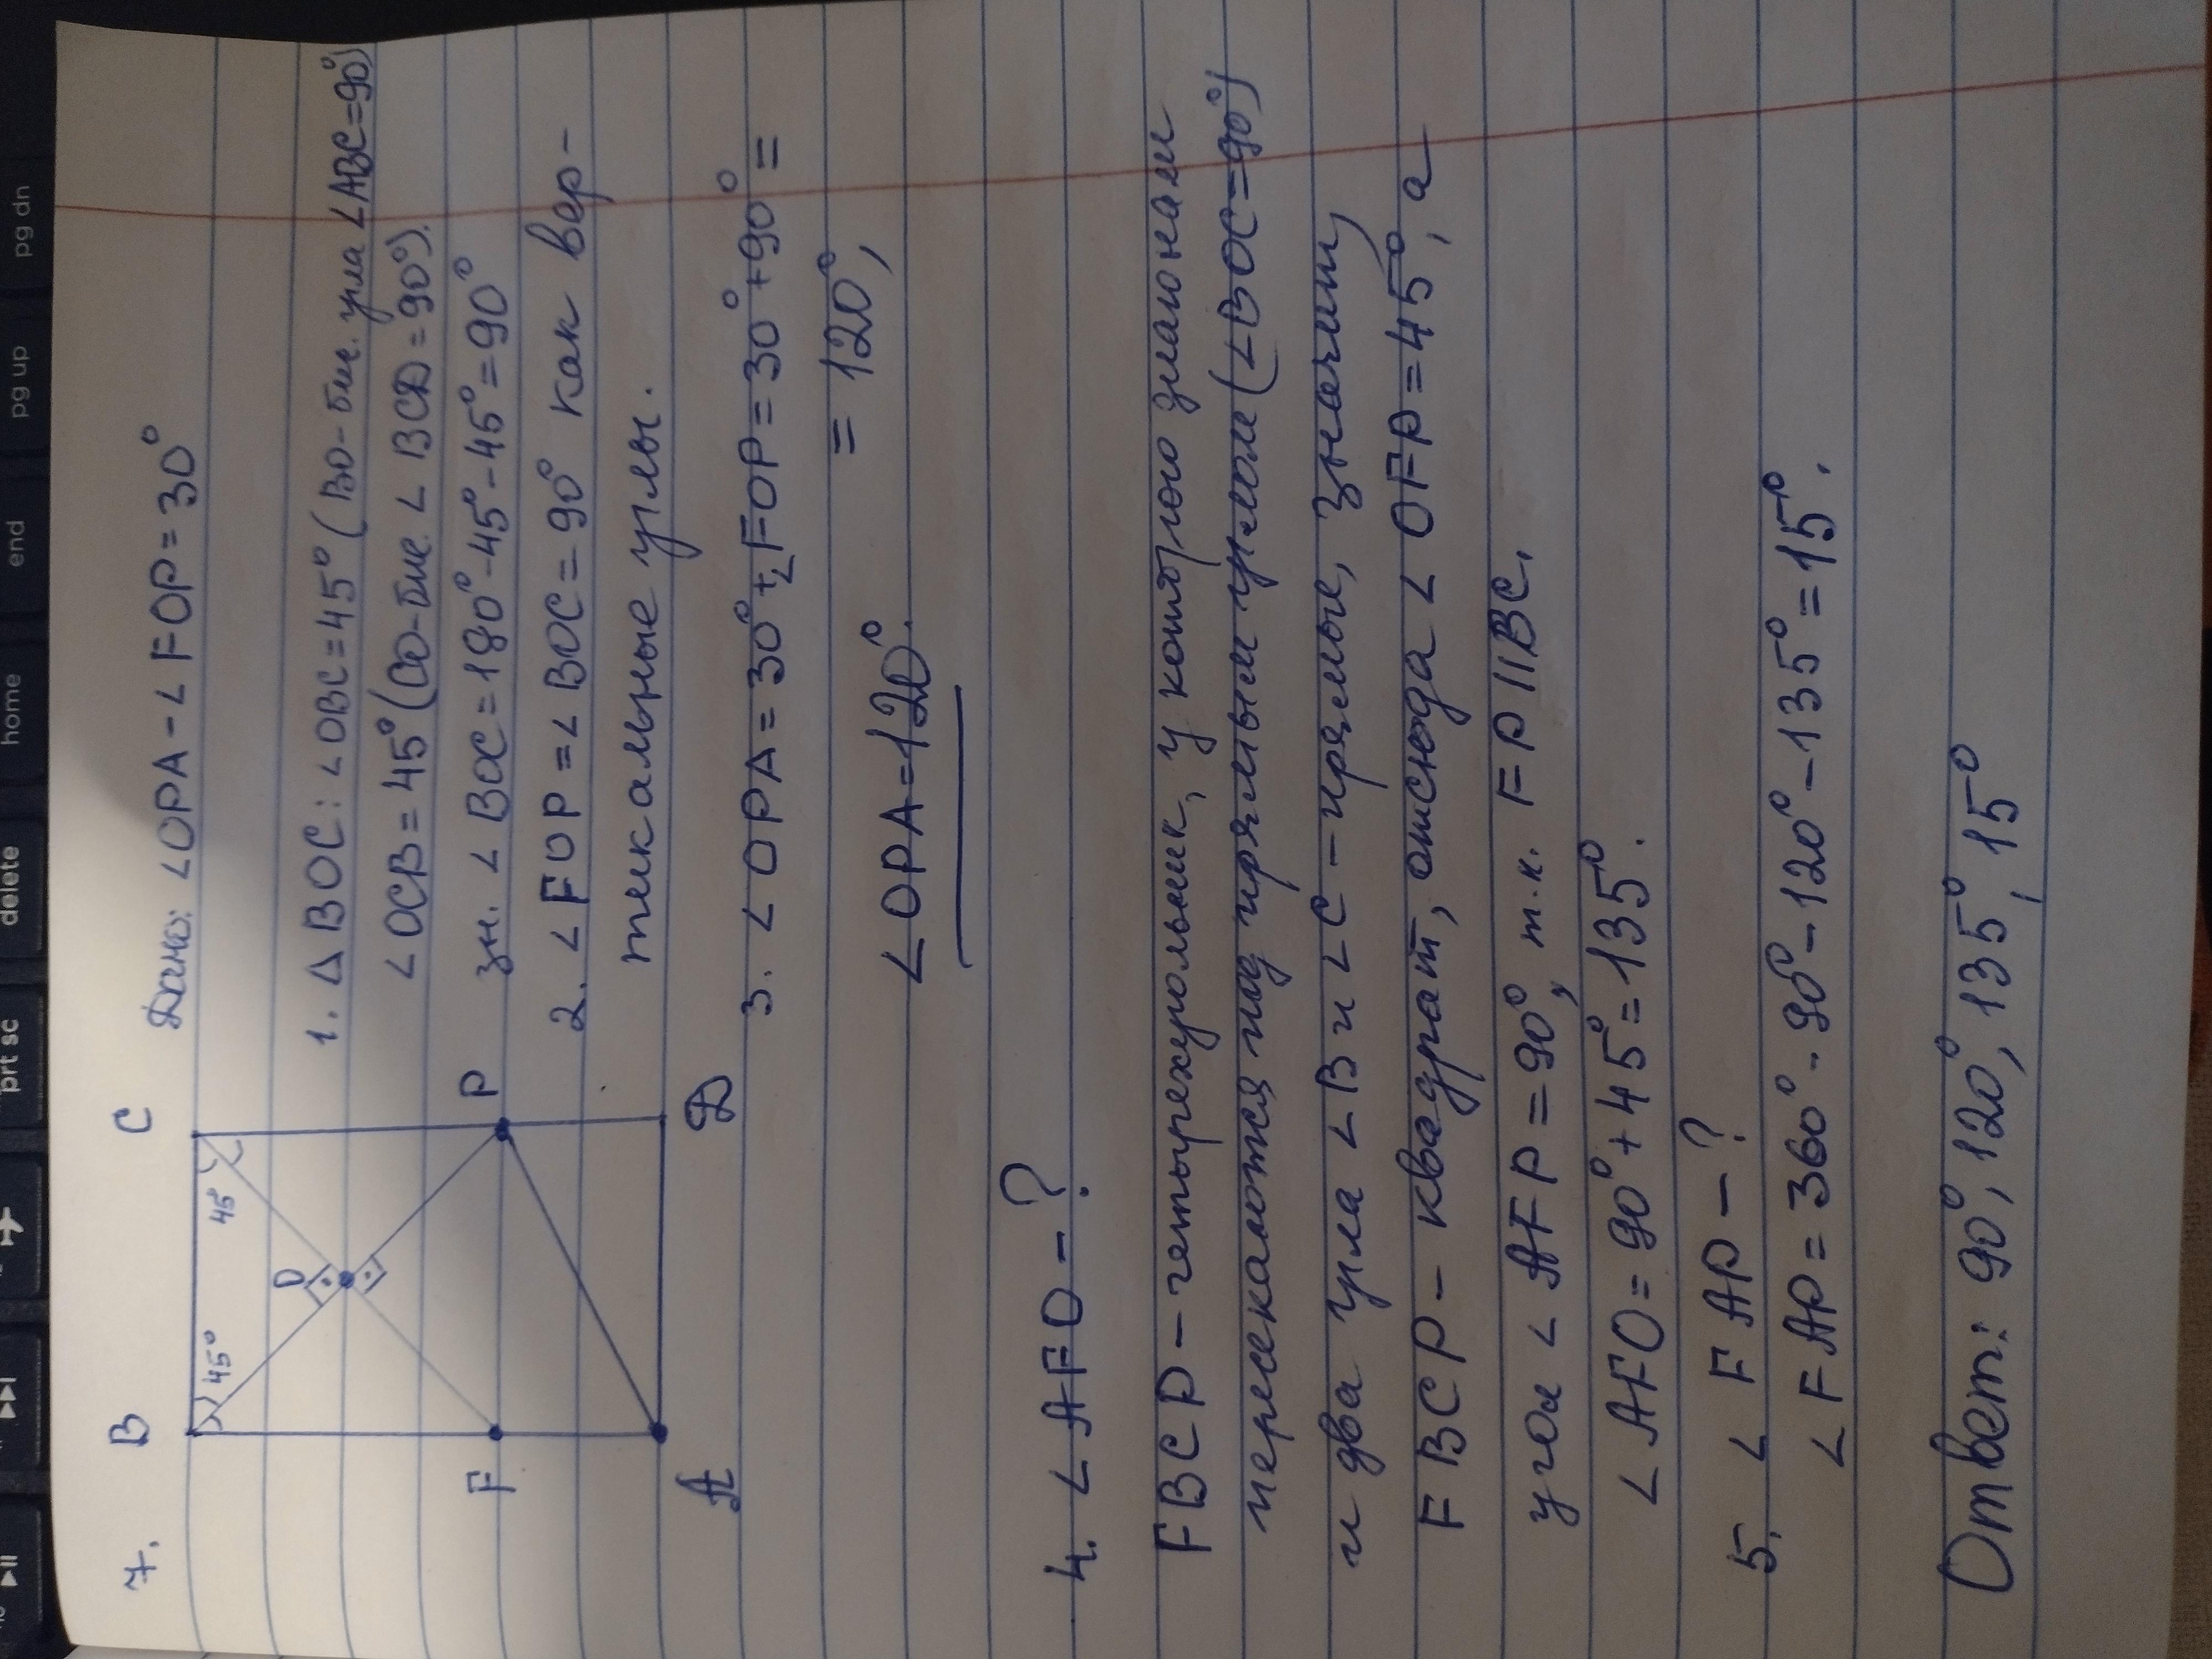 7.
B
C
45°
45°
O
F
P
A
D
Дано: ∠OPA - ∠FOP = 30°
1. △BOC: ∠OBC = 45° (BO - бис. угла ∠ABC = 90°)
∠OCB = 45° (CO - бис. ∠BCD = 90°).
зн. ∠BOC = 180° - 45° - 45° = 90°
2. ∠FOP = ∠BOC = 90° как вер-
тикальные углы.
3. ∠OPA = 30° + ∠FOP = 30° + 90° =
= 120°,
∠OPA = 120°.
4. ∠AFO - ?
FBCP - четырехугольник, у которого диагонали
пересекаются под прямым углом (∠BOC = 90°)
и два угла ∠B и ∠C - прямые, значит,
FBCP - квадрат, отсюда ∠OFP = 45°, а
угол ∠AFP = 90°, т.к. FP || BC.
∠AFO = 90° + 45° = 135°.
5. ∠FAP - ?
∠FAP = 360° - 90° - 120° - 135° = 15°.
Ответ: 90°, 120°, 135°, 15°
pg dn
pg up
end
home
delete
prt sc